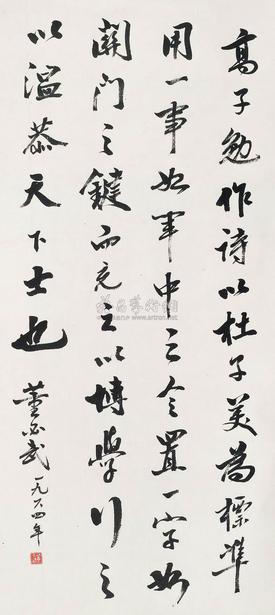 高子勉作诗以杜子美为標準
用一事如軍中之令置一字如
關門之鍵而充之以博學行之
以温恭天下士也
董必武一九六四年
www.artron.net